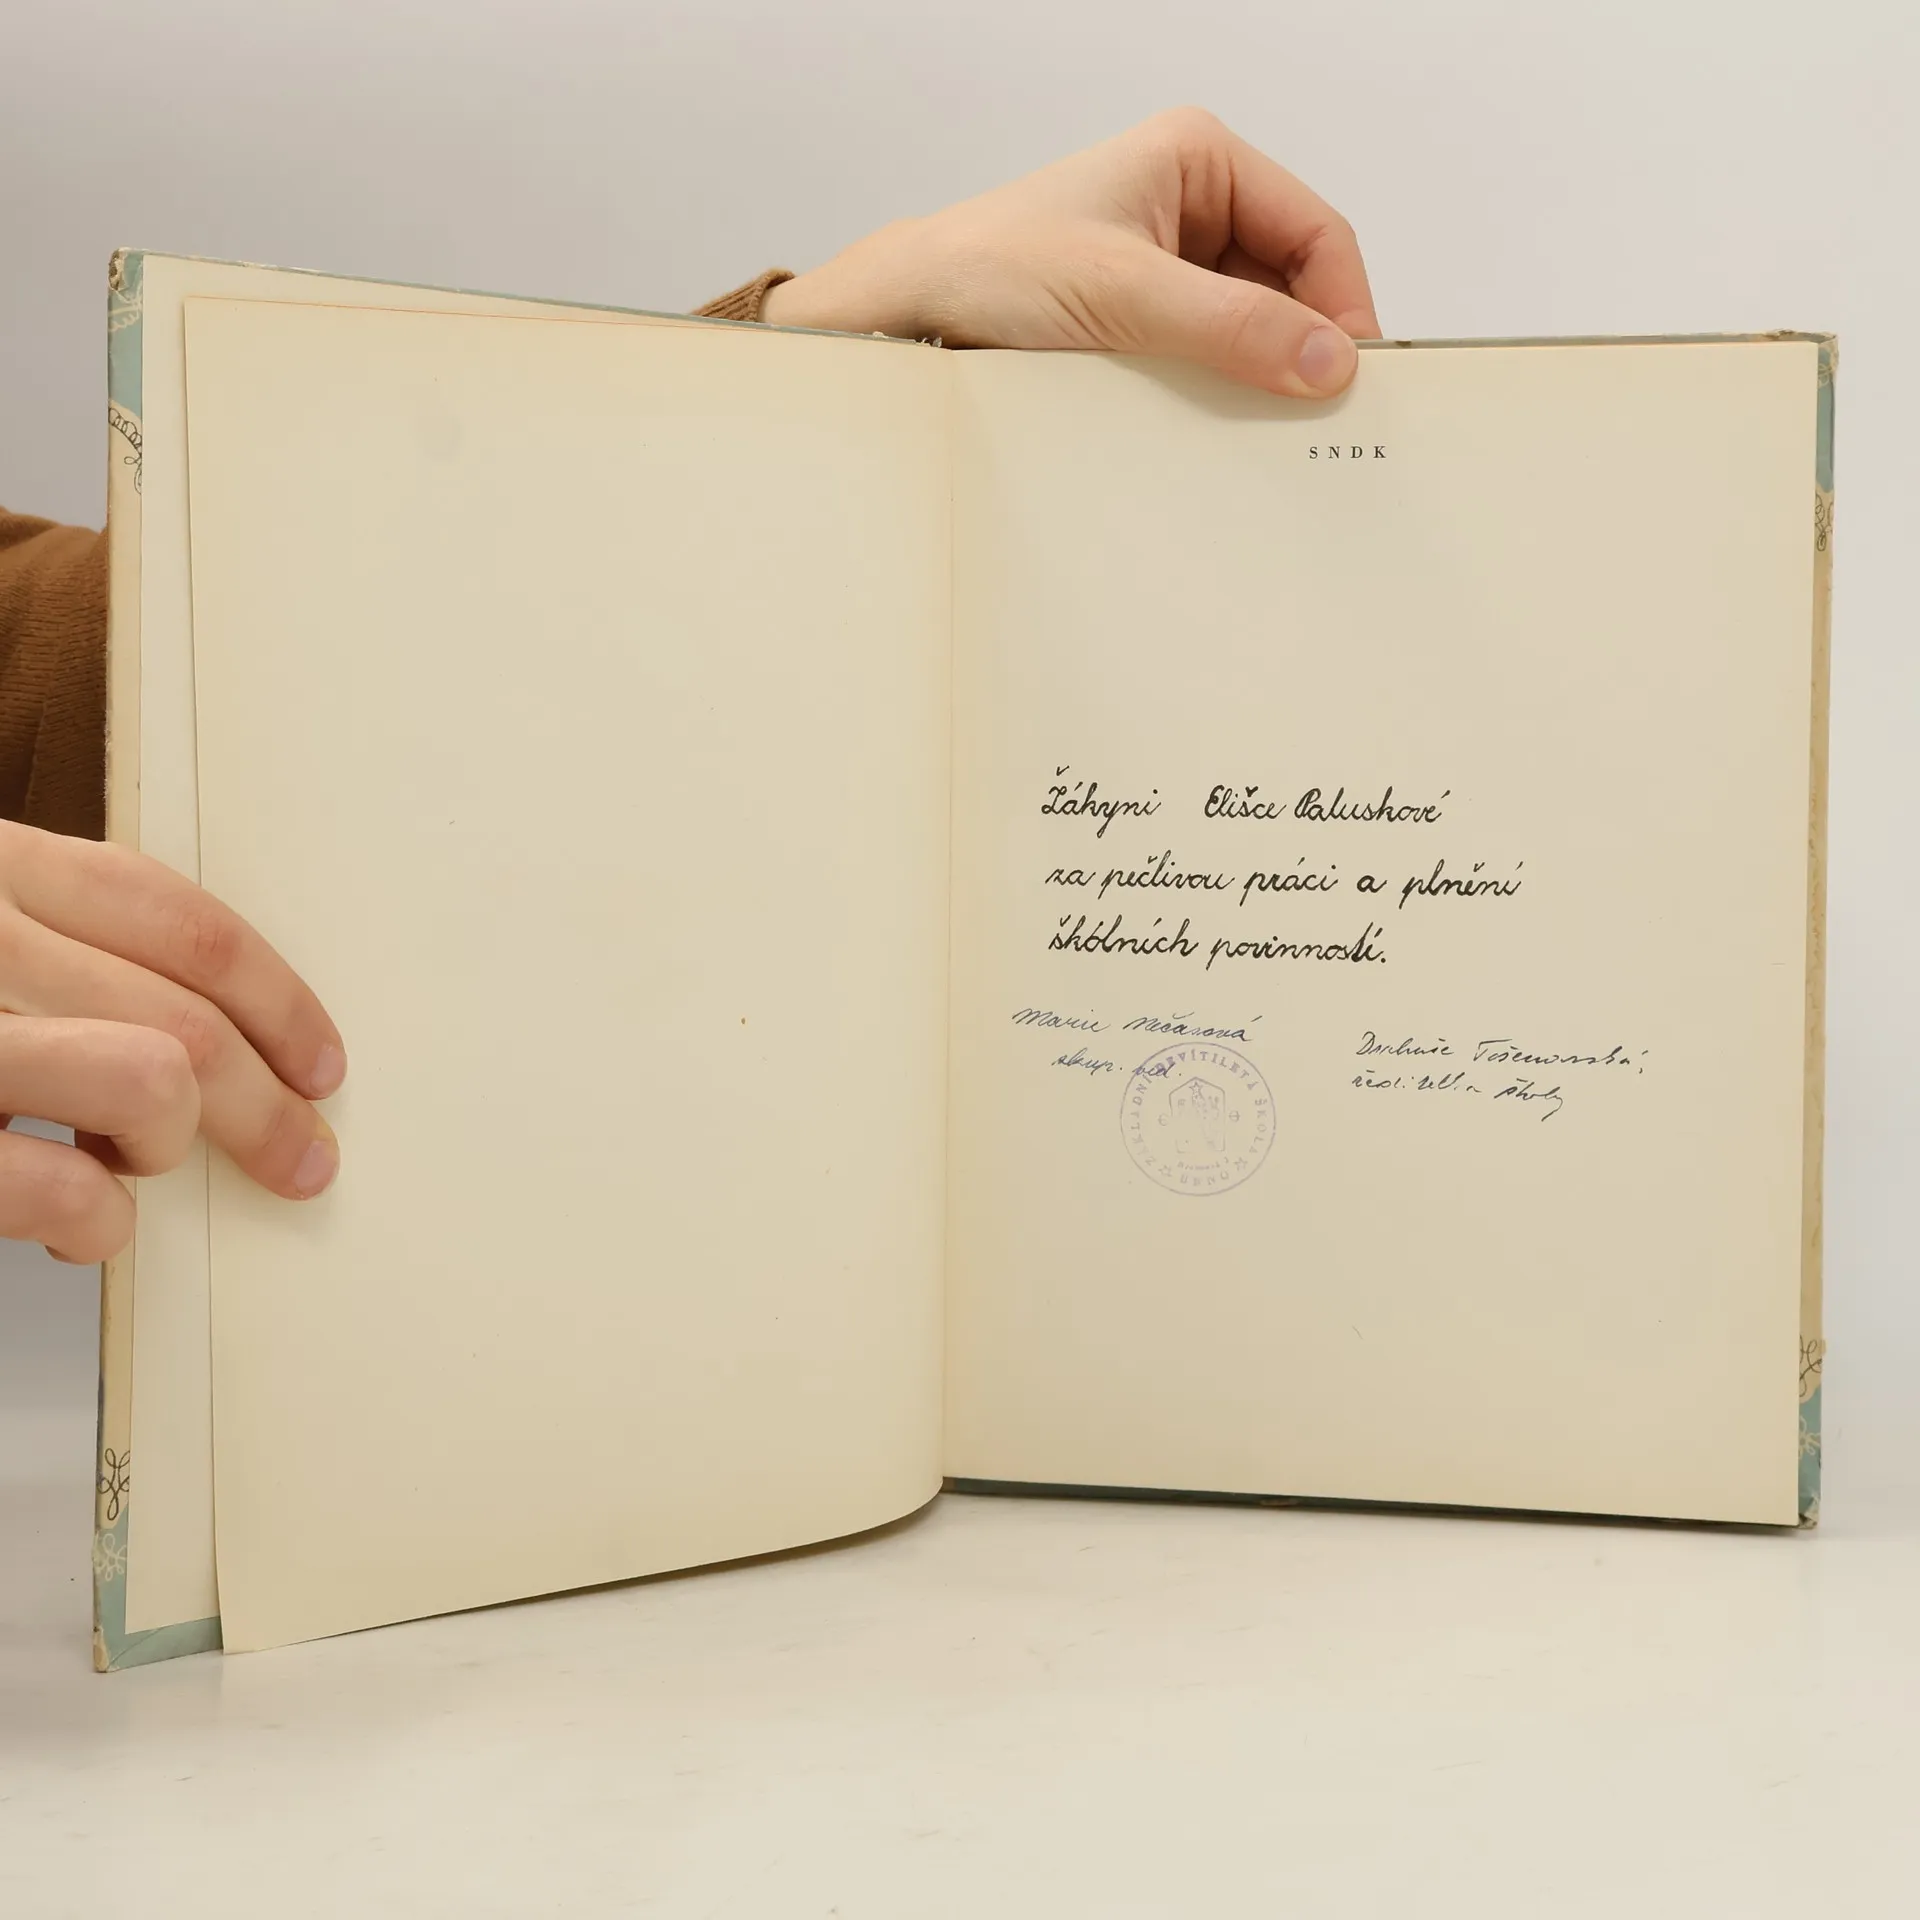 SNDK
Žákyni Elišce Paluskové
za pečlivou práci a plnění
škólních povinností.
Marie Nečasová
skup. ved.
Drahuše Tošenovská,
ředitelka školy
ZÁKLADNÍ DEVÍTILETÁ ŠKOLA
BRNO